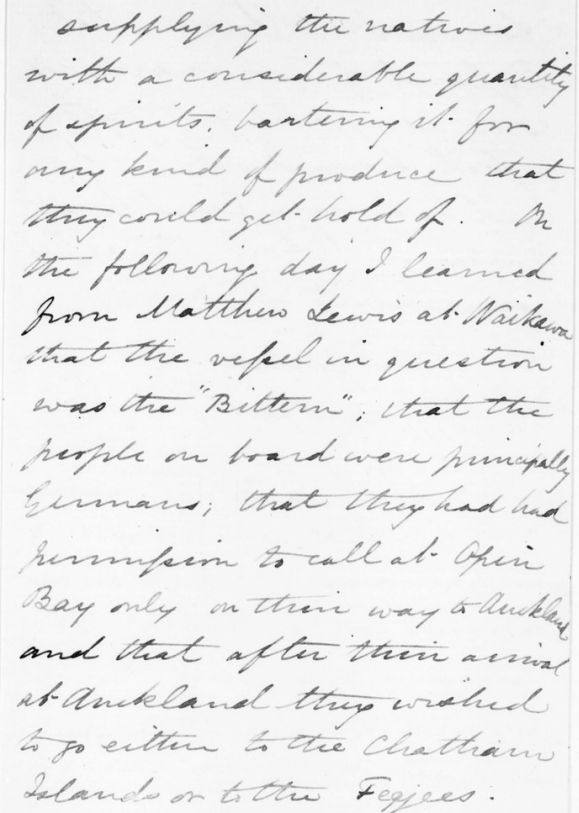 supplying the natives
with a considerable quantity
of spirits, bartering it for
any kind of produce that
they could get hold of. On
the following day I learned
from Matthew Lewis at Waikawa
that the vessel in question
was the "Bittern", that the
people on board were principally
Germans; that they had had
permission to call at Open
Bay only on their way to Auckland
and that after their arrival
at Auckland they wished
to go either to the Chatham
Islands or to the Feejees.